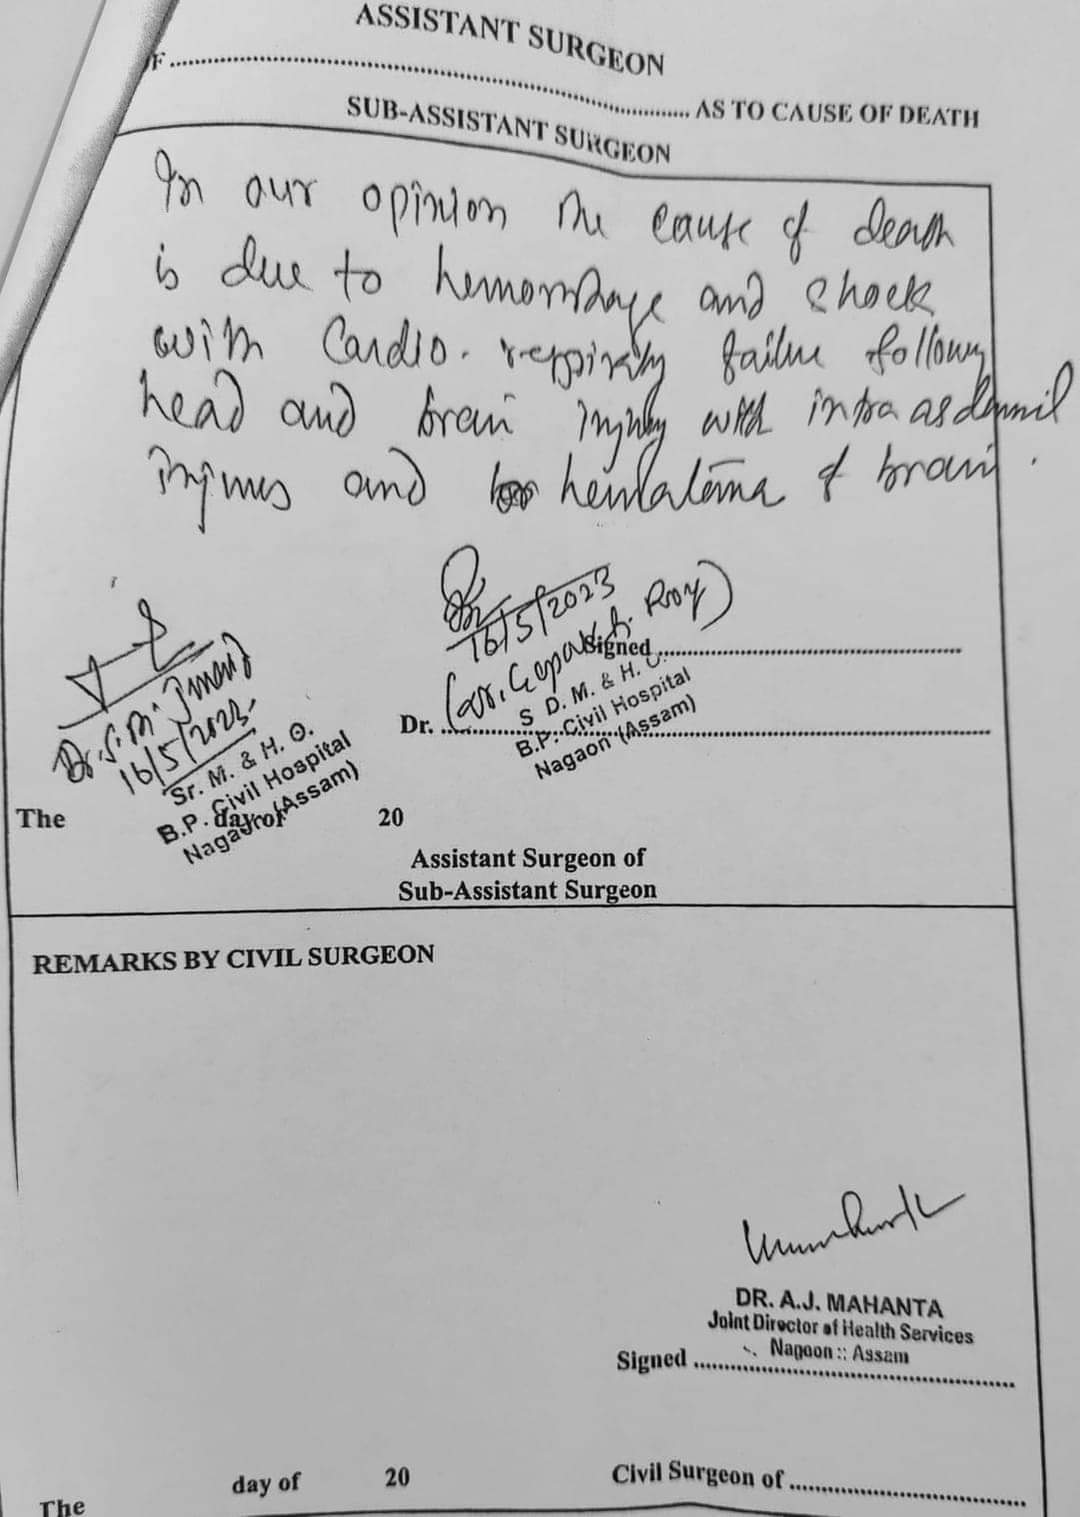 ASSISTANT SURGEON
OF ........................ AS TO CAUSE OF DEATH
SUB-ASSISTANT SURGEON
In our opinion the cause of death
is due to hemorrhage and shock
with Cardio-respiratory failure following
head and brain injury with
injuries and hematoma of brain.
16/5/2023
Roy)
Signed ........................
S D. M. & H. O.
Dr. ........................
B.P. Civil Hospital
Nagaon (Assam)
Dr. S.
16/5/2023
Sr. M. & H. O.
B.P. Civil Hospital
Nagaon (Assam)
The day of 20
Assistant Surgeon of
Sub-Assistant Surgeon
REMARKS BY CIVIL SURGEON
DR. A.J. MAHANTA
Joint Director of Health Services
Nagaon :: Assam
Signed ........................
The day of 20 Civil Surgeon of ........................